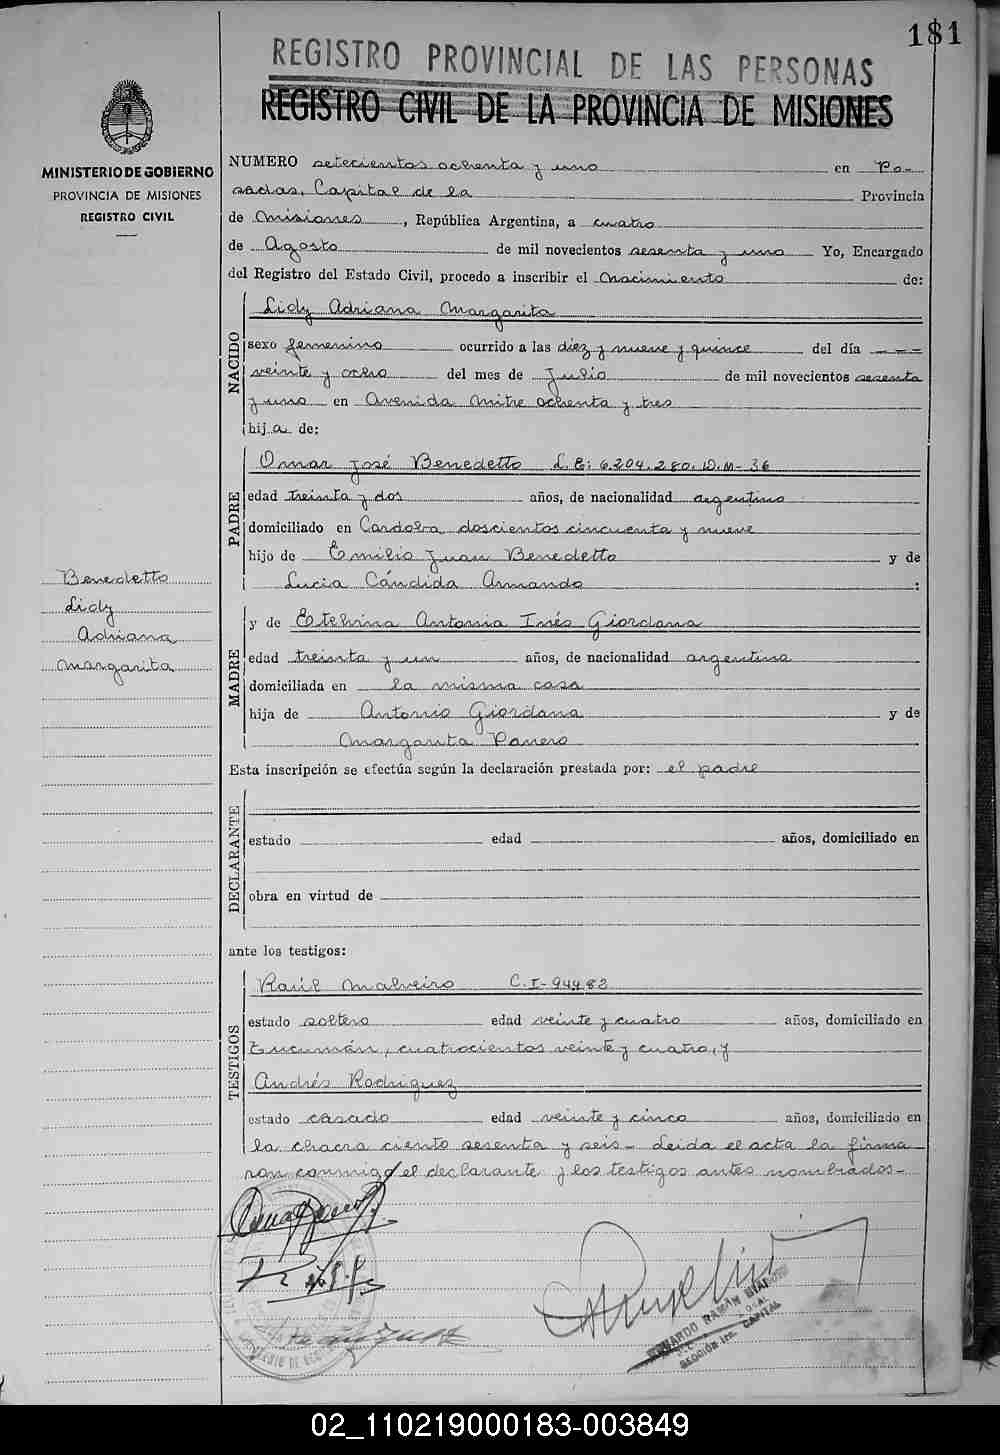 181
REGISTRO PROVINCIAL DE LAS PERSONAS
REGISTRO CIVIL DE LA PROVINCIA DE MISIONES
MINISTERIO DE GOBIERNO
PROVINCIA DE MISIONES
REGISTRO CIVIL
NUMERO setecientos ochenta y uno en Po-
sadas, Capital de la Provincia
de Misiones, República Argentina, a cuatro
de Agosto de mil novecientos sesenta y uno Yo, Encargado
del Registro del Estado Civil, procedo a inscribir el Nacimiento de:
NACIDO
Lidy Adriana Margarita
sexo femenino ocurrido a las diez y nueve y quince del día ---
veinte y ocho del mes de Julio de mil novecientos sesenta
y uno en Avenida Mitre ochenta y tres
hija de:
PADRE
Omar José Benedetto L.E: 6.204.280. D.M-36
edad treinta y dos años, de nacionalidad argentino
domiciliado en Cordoba doscientos cincuenta y nueve
hijo de Emilio Juan Benedetto y de
Lucia Cándida Armando :
Benedetto
Lidy
Adriana
Margarita
MADRE
y de Etelvina Antonia Inés Giordana
edad treinta y un años, de nacionalidad argentina
domiciliada en la misma casa
hija de Antonio Giordana y de
Margarita Panero
Esta inscripción se efectúa según la declaración prestada por: el padre
DECLARANTE
estado edad años, domiciliado en
obra en virtud de
ante los testigos:
TESTIGOS
Raúl Malveiro C.I-94483
estado soltero edad veinte y cuatro años, domiciliado en
Tucumán, cuatrocientos veinte y cuatro, y
Andrés Rodriguez
estado casado edad veinte y cinco años, domiciliado en
la chacra ciento sesenta y seis - Leida el acta la firma
ron conmigo el declarante y los testigos antes nombrados-
RAMÓN
SECCIÓN 1ra. CAPITAL
02_110219000183-003849